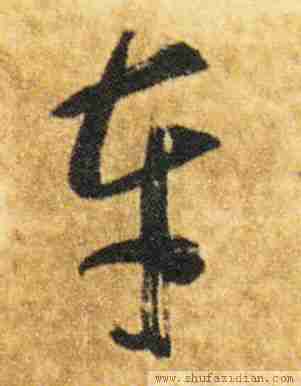 车
www.shufazidian.com